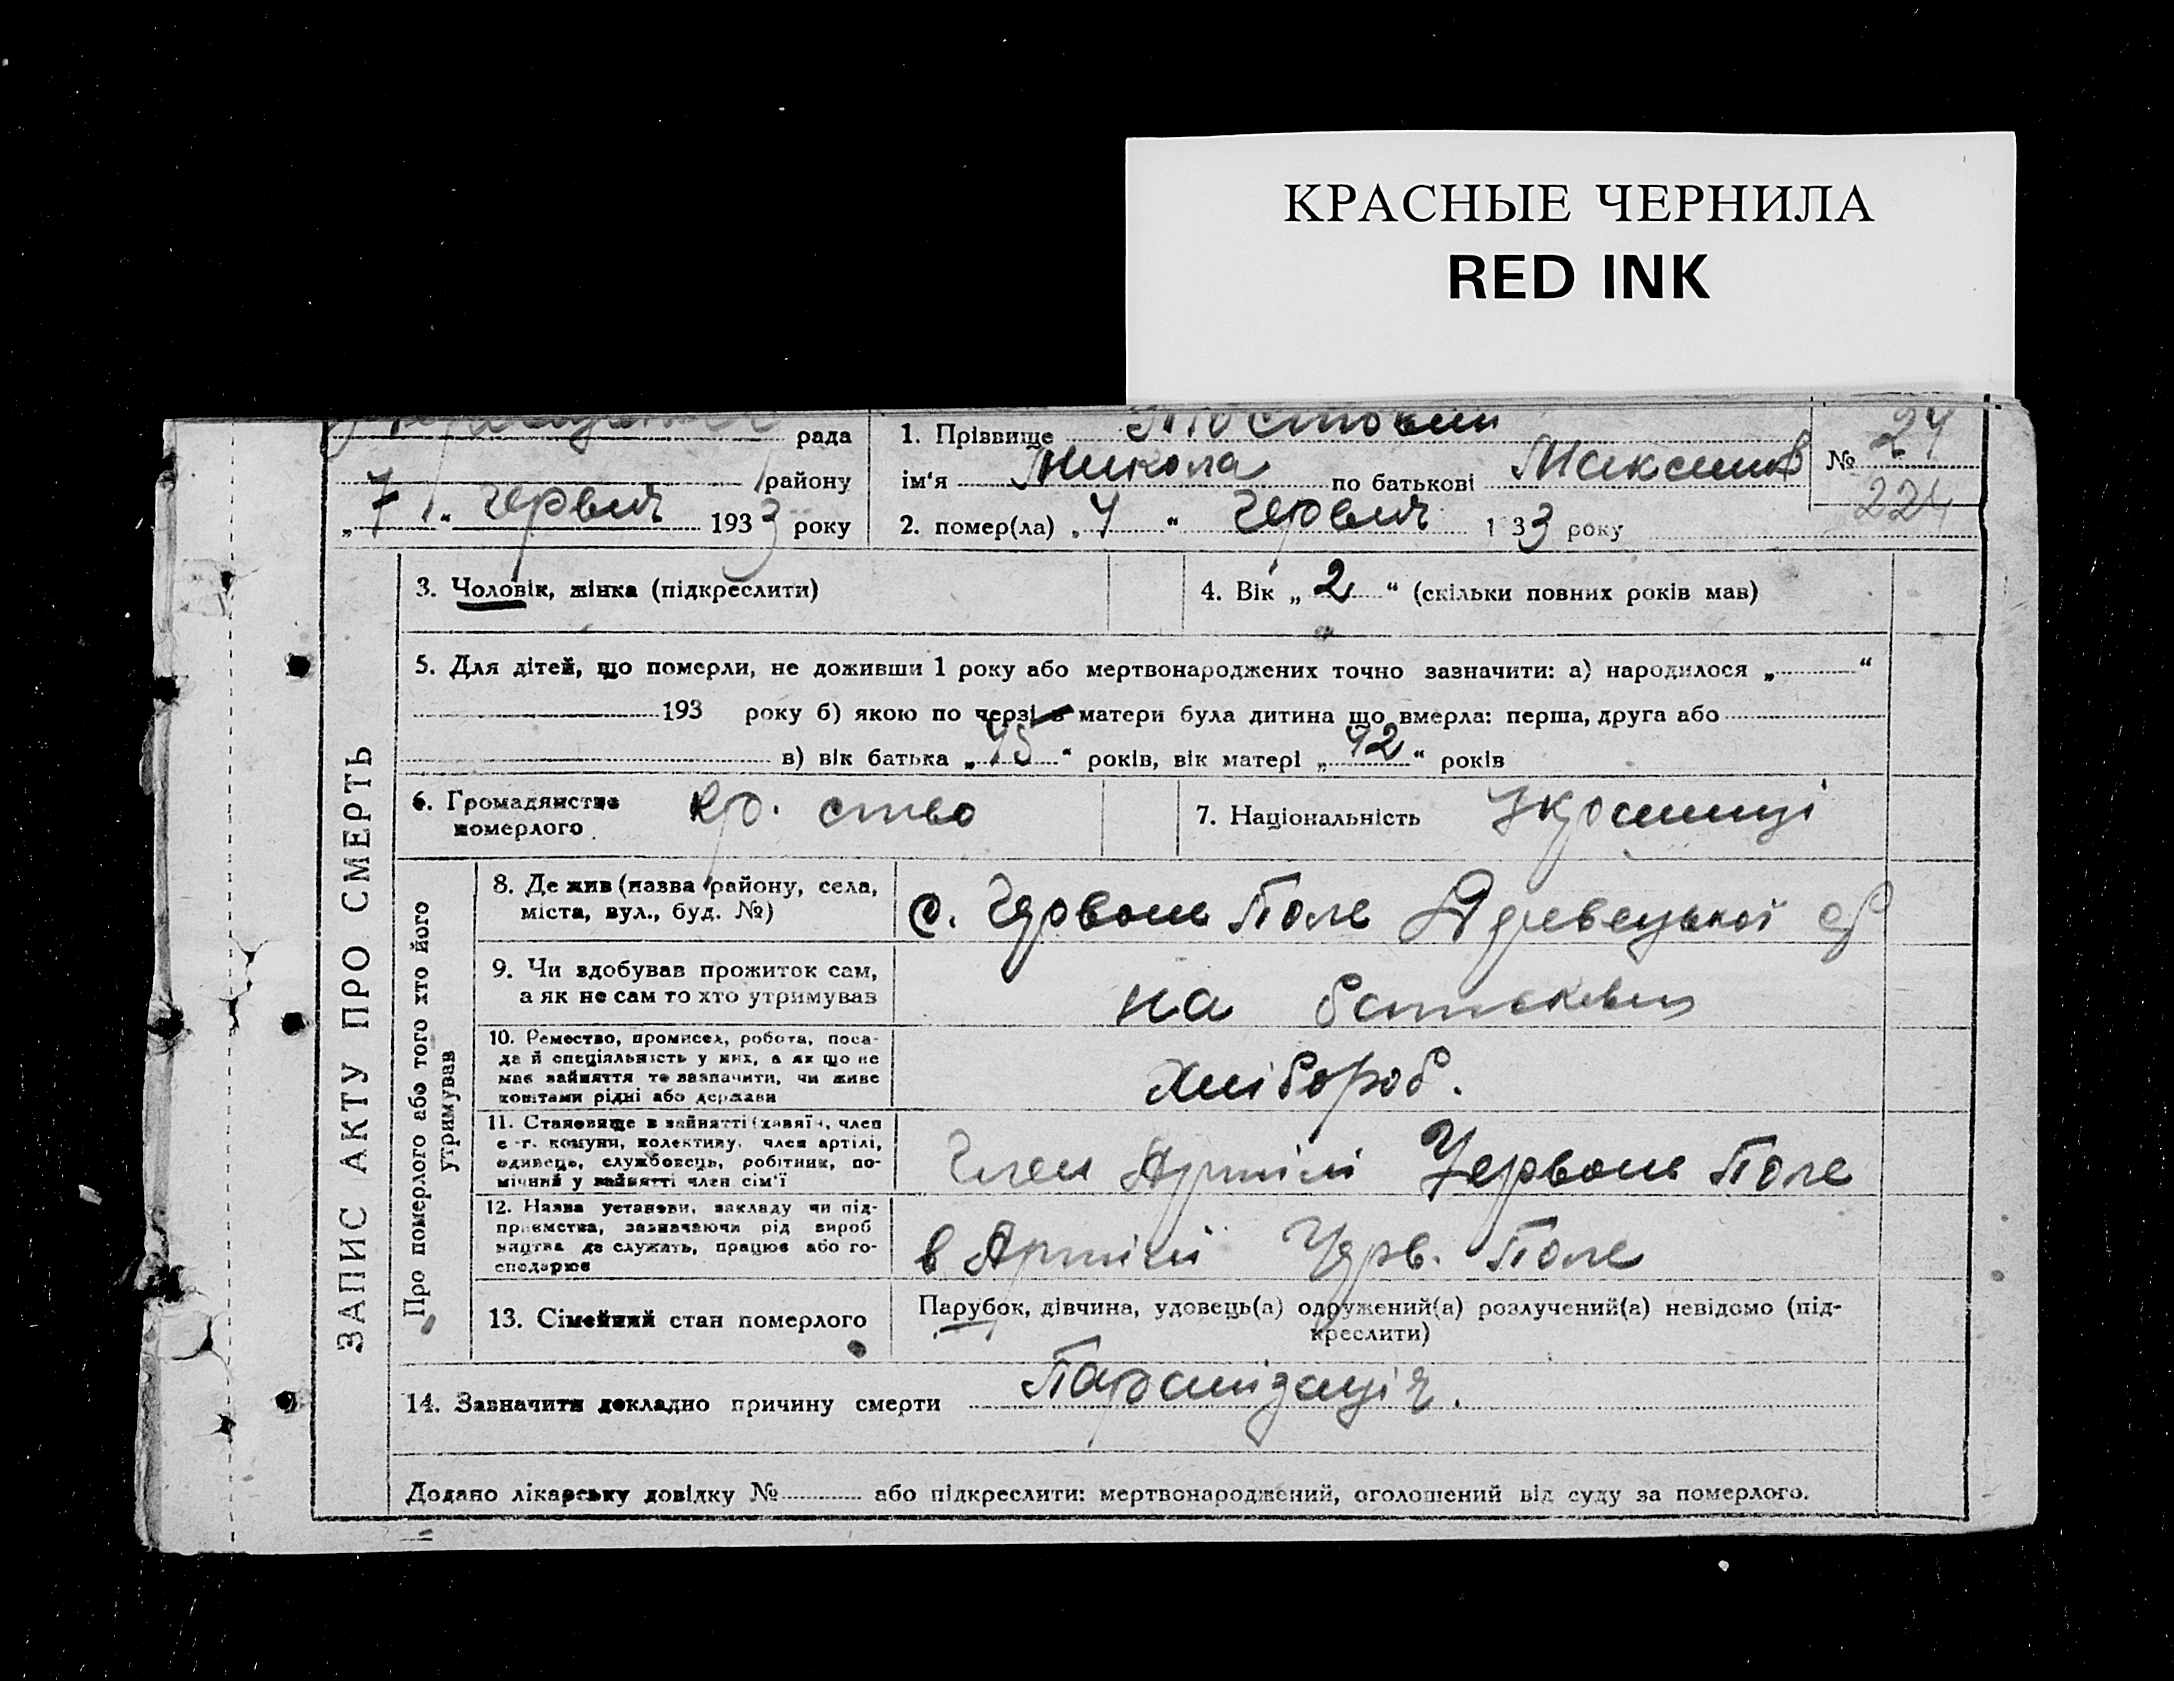 КРАСНЫЕ ЧЕРНИЛА
RED INK
рада
району
„ 7 “ червня 1933 року
1. Прізвище
ім'я Микола по батькові Максимов
2. помер(ла) „ 7 “ червня 1 33 року
№ 24
224
ЗАПИС АКТУ ПРО СМЕРТЬ
3. Чоловік, жінка (підкреслити)
4. Вік „ 2 “ (скільки повних років мав)
5. Для дітей, що померли, не доживши 1 року або мертвонароджених точно зазначити: а) народилося „ “
193 року б) якою по черзі в матери була дитина що вмерла: перша, друга або
в) вік батька „ 45 “ років, вік матері „ 42 “ років
6. Громадянство
померлого
кр. ство
7. Національність Україниці
Про померлого або того хто його
утримував
8. Де жив (назва району, села,
міста, вул., буд. №)
с. Червоне Поле
9. Чи здобував прожиток сам,
а як не сам то хто утримував
на
10. Ремество, промисел, робота, поса-
да й спеціяльність у них, а як що не
має зайняття то зазначити, чи живе
коштами рідні або держави
Хлібороб.
11. Становище в зайнятті (хазяїн, член
с-г. комуни, колективу, член артілі,
одинець, службовець, робітник, по-
мічний у зайнятті член сім'ї
Член Артілі Червоне Поле
12. Назва установи, закладу чи під-
приємства, зазначаючи рід вироб
ництва де служить, працює або го-
сподарює
в Артілі Черв. Поле
13. Сімейний стан померлого
Парубок, дівчина, удовець(а) одружений(а) розлучений(а) невідомо (під-
креслити)
14. Зазначити докладно причину смерти Паралізація.
Додано лікарську довідку № або підкреслити: мертвонароджений, оголошений від суду за померлого.